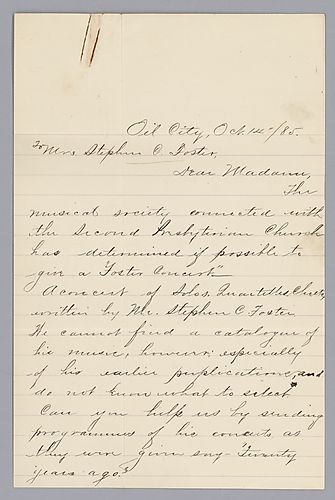 Oil City, Oct. 14th/85.
To Mrs Stephen C. Foster,
Dear Madam,
The
musical society connected with
the Second Presbyterian Church
has determined if possible to
give a "Foster Concert."
A concert of Solos, Quartettes,
written by Mr. Stephen C. Foster.
We cannot find a catalogue of
his music, however, especially
of his earlier puplications, and
do not know what to select.
Can you help us by sending
programmes of his concerts as
they were given say - Twenty
years ago?